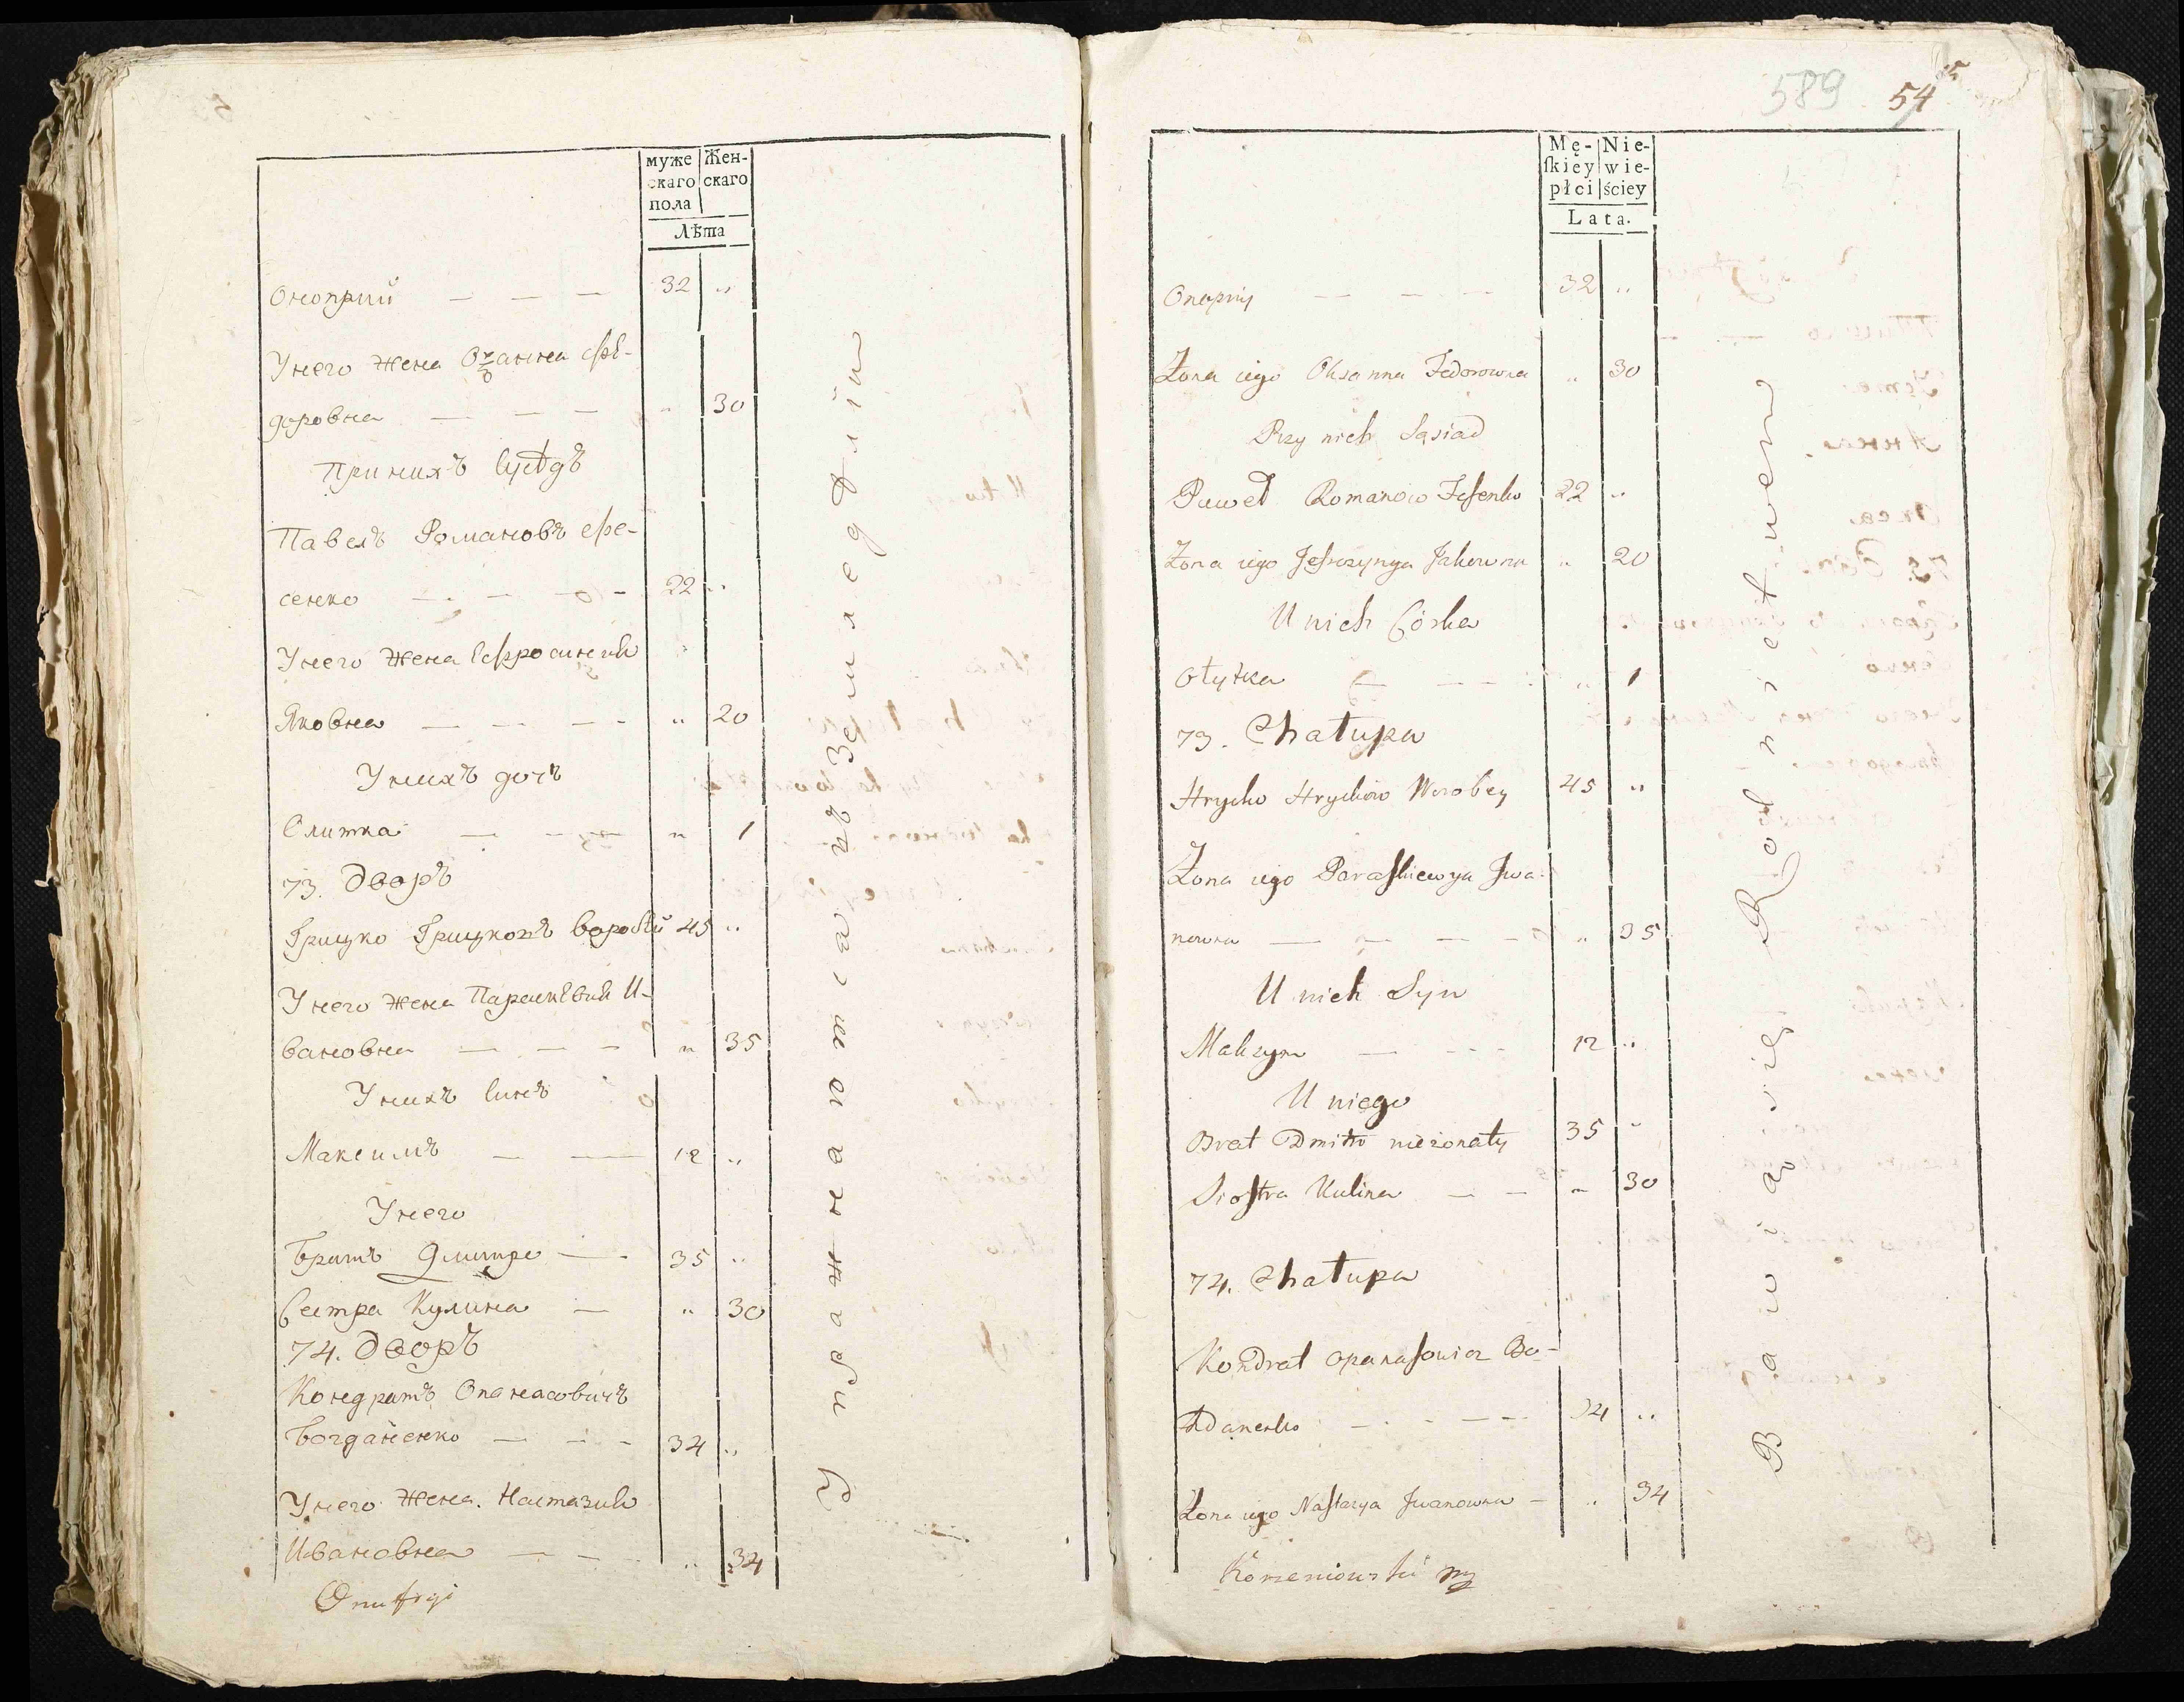 муже
скаго
пола
Жен-
скаго
Лѣта
Оноприй — — — 32 „
Унего жена Оѯанна Фе-
доровна — — — „ 30
Принихъ Сусѣдъ
Павелъ Романовъ Фе-
сенко — — — 22 „
Унего жена Ефросинѣй
Яковна — — — — „ 20
Унихъ дочь
Олитка — — — „ 1
73. Дворъ
Грицко Грицковъ Воробѣй 45 „
Унего жена Парасковий И-
вановна — — — „ 35
Унихъ Синъ
Максимъ — — 12 „
Унего
Братъ Дмитро — 35 „
Сестра Кулина — „ 30
74. Дворъ
Кондратъ Опанасовичъ
Богданенко — — — 34 „
Унего жена Настазий
Ивановна — — „ 34
Onuffryi
Упражнаются въ Земледѣлїи
589 54
Mę-
skiey
płci
Nie-
wie-
ściey
Lata.
Onopriy — — — 32 „
Żona iego Oksanna Fedorowna „ 30
Przy nich Sąsiad
Paweł Romanow Fesenko 22 „
Żona iego Jefrozynya Jakowna „ 20
U nich Córka
Ołytka — — — „ 1
73. Chałupa
Hrycko Hryckow Worobey 45 „
Żona iego Paraskiewya Jwa-
nowna — — — — „ 35
U nich Syn
Maksym — — — 12 „
U niego
Brat Dmitro nieżonaty 35 „
Siostra Kulina — — „ 30
74. Chałupa
Kondrat Opanasowicz Bo-
hdanenko — — — — 34 „
Żona iego Nastazya Jwanowna — „ 34
Korzeniowski
Bawiąią się Rolnictwem